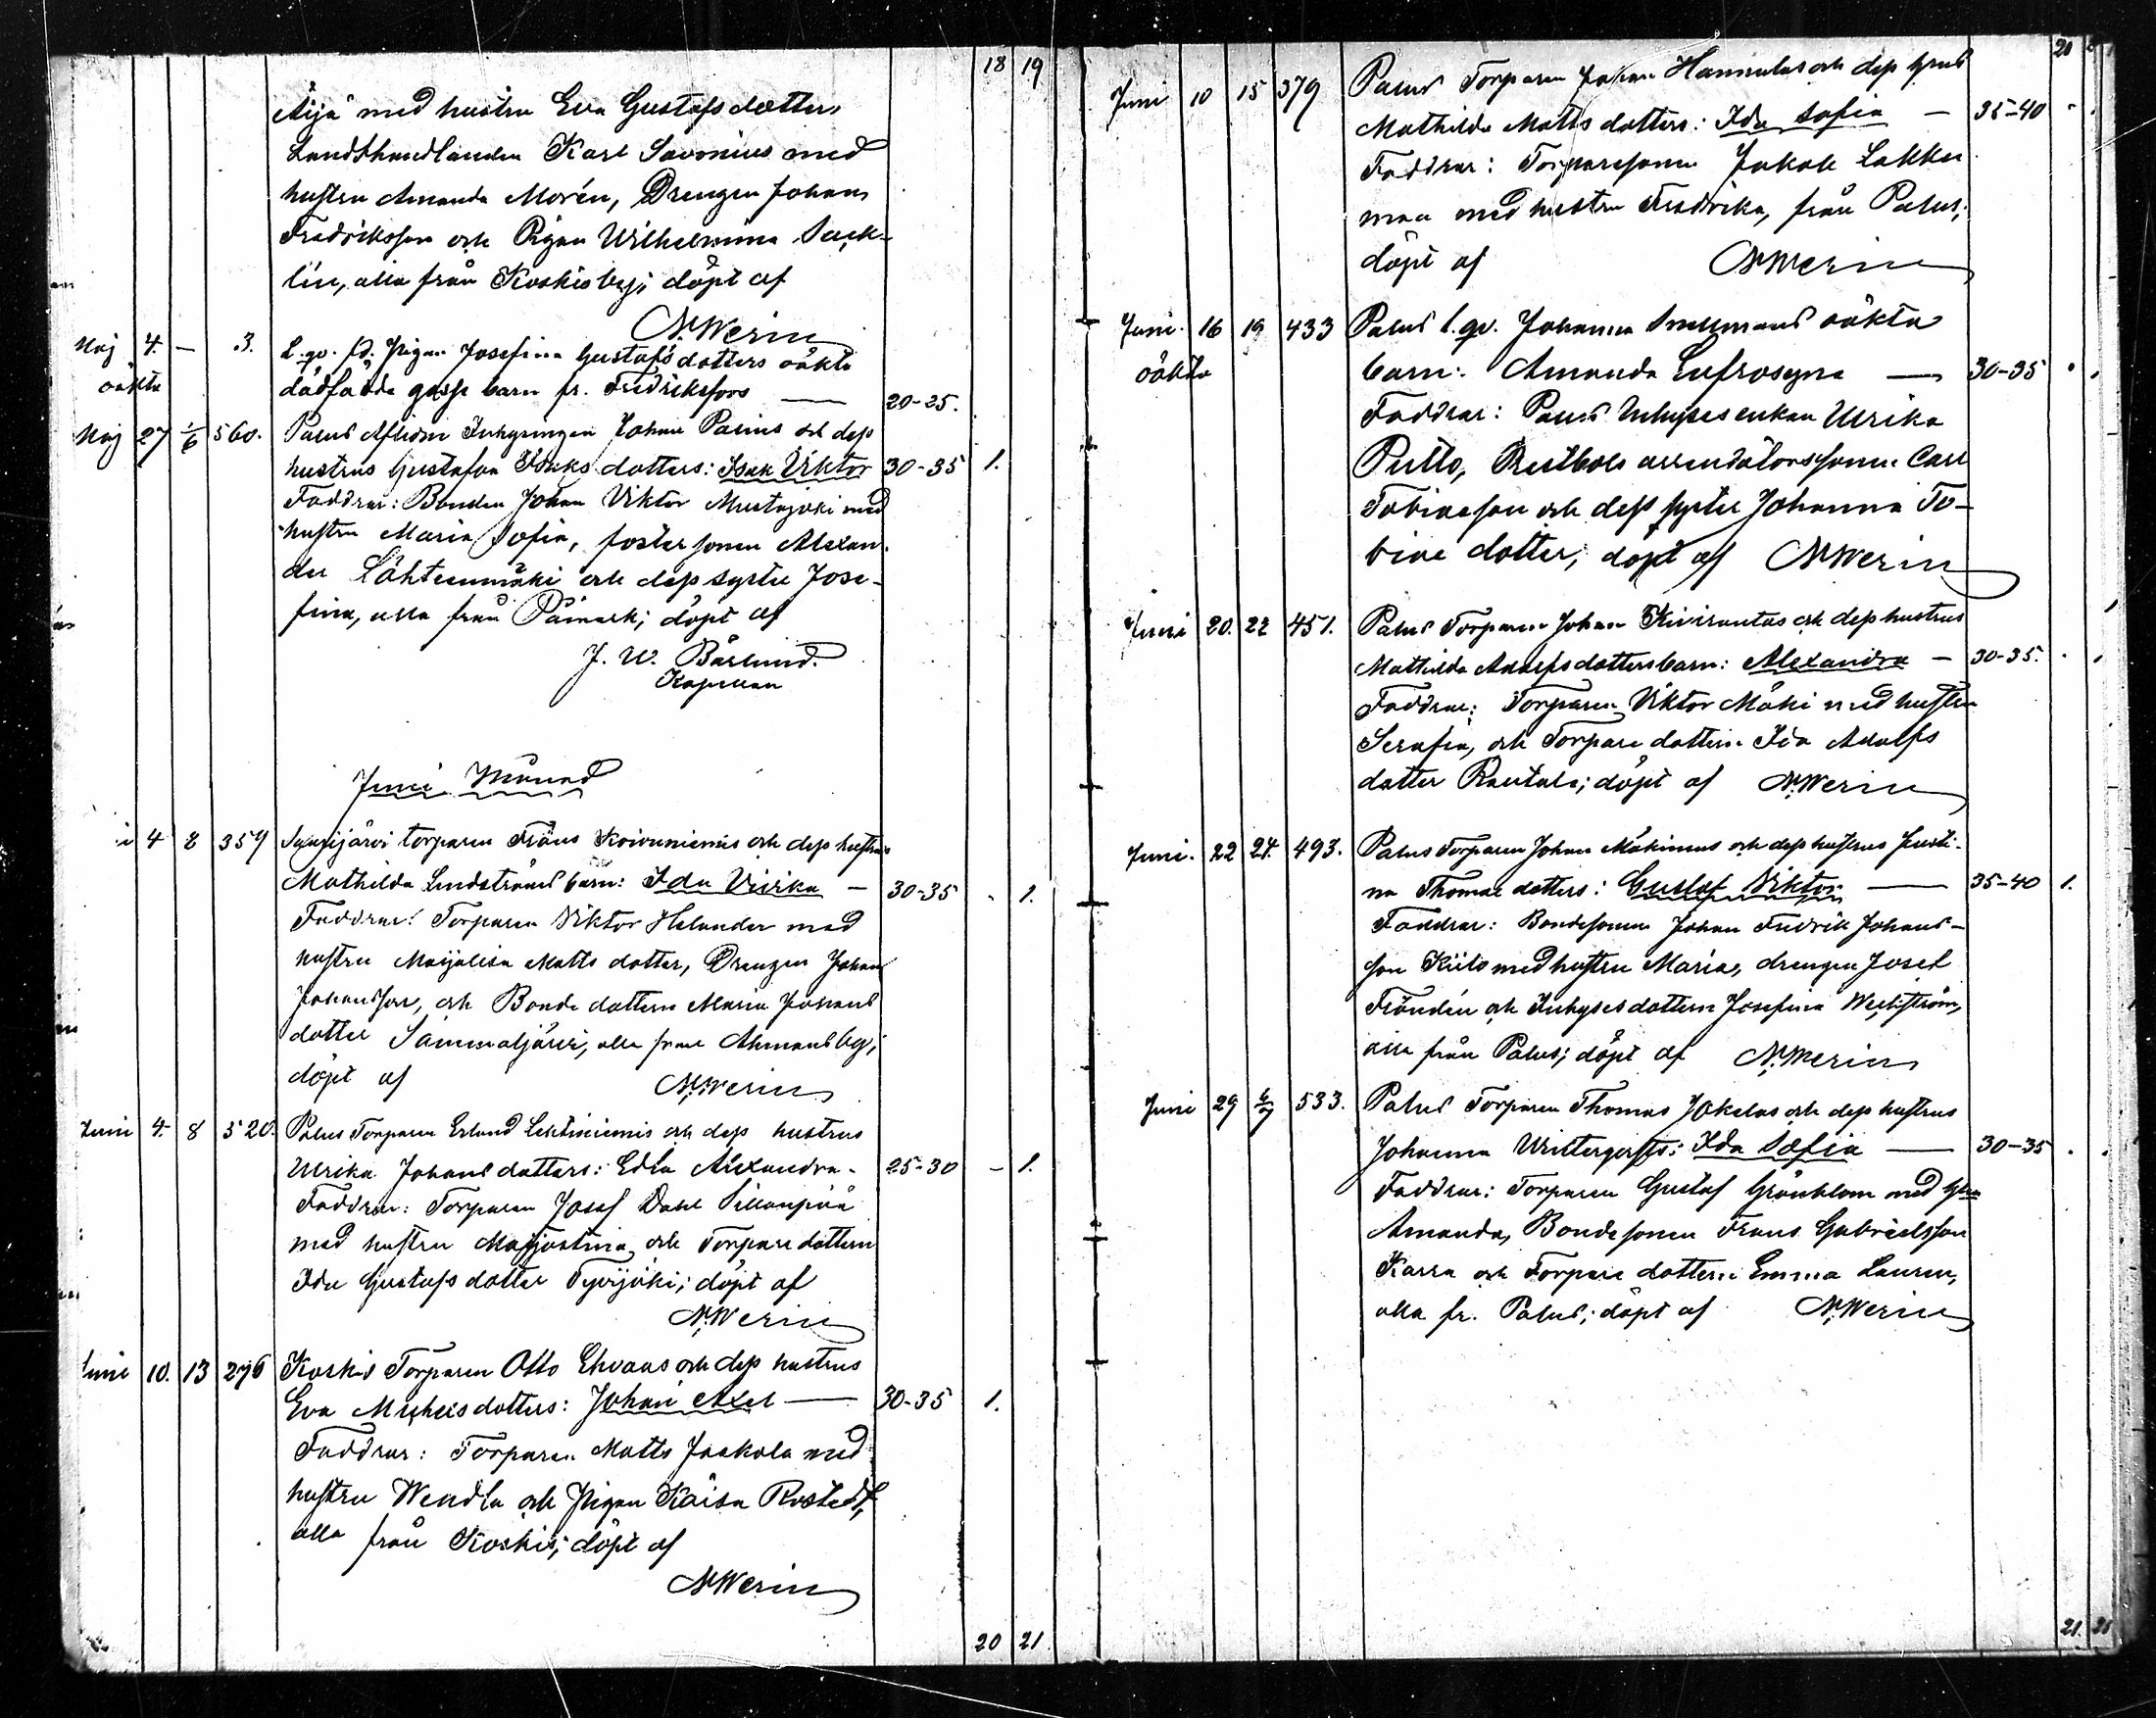 18 19
Äijä med hustru Eva Gustafsdotter,
Landthandlanden Karl Savonius med
hustru Amanda Morén, Drengen Johan
Fredriksson och Pigan Wilhelmina Säck-
lin, alla från Koskis by; döpt af
N. Werin
Maj 4. — 3. L. qv. Pigan Josefina Gustafsdotters oäkta
oäkta dödfödda gosse barn fr. Fredriksfors — 20-25.
Maj 27 1/6 560. Palus Afskedne Inhysingen Johan Palins och dess
hustrus Gustafva Isaks dotters: Isak Viktor 30-35 1.
Faddrar: Bonden Johan Viktor Mustajoki med
hustru Maria Sofia, fostersonen Alexan-
der Lähteenmäki och dess syster Jose-
fina, alla från Påmark; döpt af
J. W. Bärlund.
Kapellan
Juni Månad
i 4 8 359 torparen Frans Koivuniemis och dess hustrus
Mathilda Lindströms barn: Ida Ulrika — 30-35 - 1.
Faddrar: Torparen Viktor Helander med
hustru Maijalisa Matts dotter, Drengen Johan
Johansson, och Bonde dottern Maria Johans
dotter Sammaljärvi, alla från Ahmausby;
döpt af N. Werin
Juni 4. 8 520. Palus Torparen Erland Lehtiniemis och dess hustrus
Ulrika Johans dotters: Edla Alexandra - 25-30 - 1.
Faddrar: Torparen Josef Dahl Sillanpää
med hustru Majastina och Torpare dottern
Ida Gustafs dotter Tyvijoki; döpt af
N. Werin
Juni 10. 13 276 Koskis Torparen Otto Ehvaas och dess hustrus
Eva Michelsdotters: Johan Axel — 30-35 1.
Faddrar: Torparen Matts Jaakola med
hustru Wendla och Pigan Kaisa Rostedt,
alla från Koskis; döpt af
N. Werin
20 21
20
Juni 10 15 379 Palus Torparen Johan Hannulas och dess hustrus
Mathilda Matts dotters: Ida Sofia — 35-40
Faddrar: Torparesonen Jakob Lakka
maa med hustru Fredrika, från Palus;
döpt af N. Werin
Juni. 16 19 433 Palus l. qv. Johanna Snellmans oäkta
oäkta barn: Amanda Eufrosyna — 30-35
Faddrar: Palus Inhyses enkan Ulrika
Putto, arrendatorssonen Carl
Tobiasson och dess syster Johanna To-
bias dotter; döpt af N. Werin
Juni 20. 22 451. Palus Torparen Johan Kivirantas och dess hustrus
Mathilda Adolfsdotters barn: Alexandra — 30-35.
Faddrar: Torparen Viktor Mäki med hustru
Serafia, och Torpare dottern Ida Adolfs
dotter Rautala; döpt af N. Werin
Juni. 22 24. 493. Palus Torparen Johan Mäkinens och dess hustrus Justi-
na Thomas dotters: Gustaf Viktor — 35-40 1.
Faddrar: Bondesonen Johan Fredrik Johans-
son Kiilo med hustru Maria, drengen Josef
Frändén och Inhyses dottern Josefina Werlström,
alla från Palus; döpt af N. Werin
Juni 29 4/7 533. Palus Torparen Thomas Jokelas och dess hustrus
Johanna Wintergerste: Ida Sofia — 30-35
Faddrar: Torparen Gustaf Grönblom med hustru
Amanda, Bondesonen Frans Gabrielsson
Karra och Torpare dottern Emma Lauren,
alla fr. Palus; döpt af N. Werin
21. 21